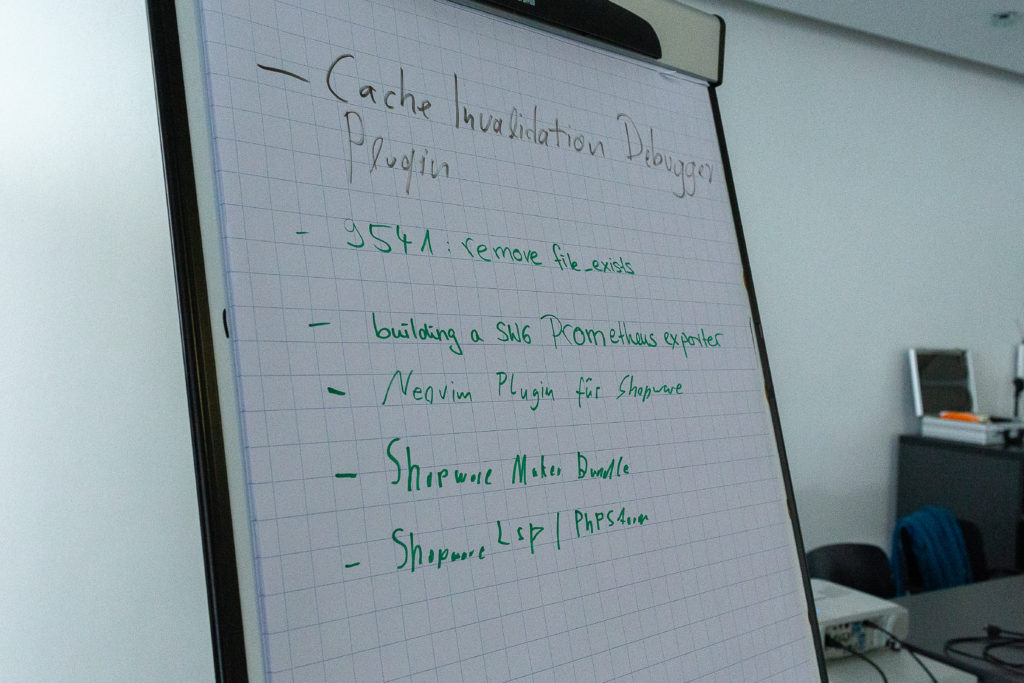 - Cache Invalidation Debugger
Plugin
- 9541: remove file_exists
- building a SW6 Prometheus exporter
- Neovim Plugin für Shopware
- Shopware Maker Bundle
- Shopware LSP / PHPStorm